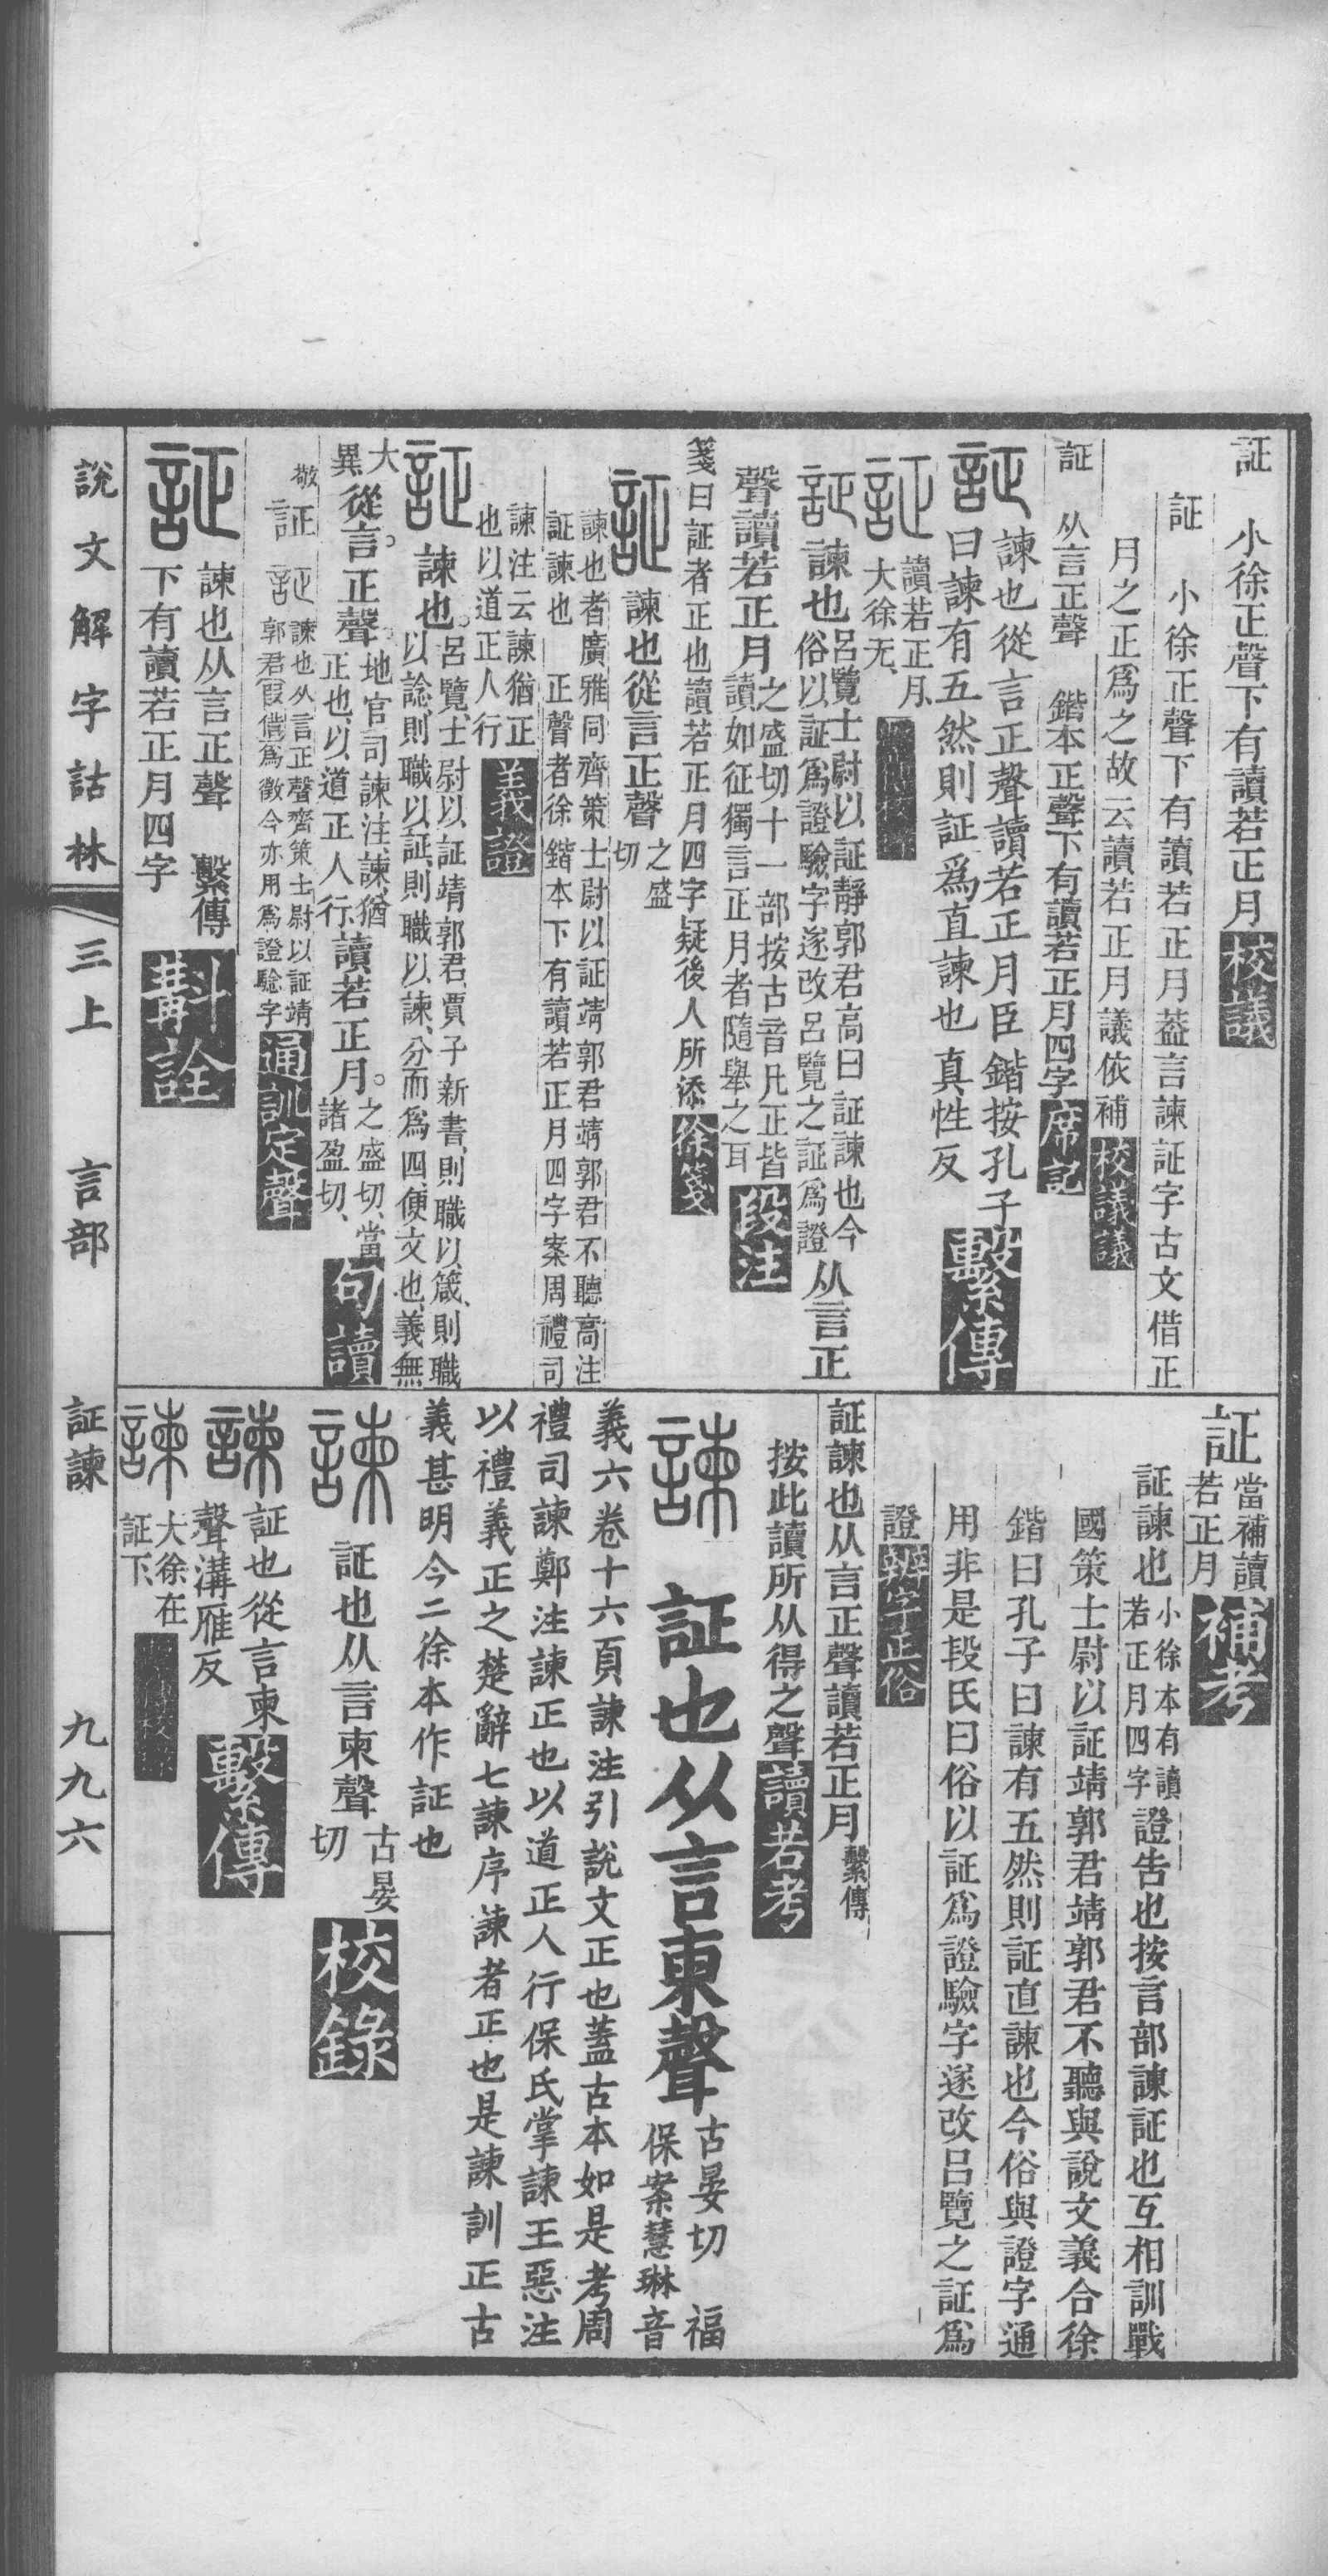 証　小徐正聲下有讀若正月校議
証　小徐正聲下有讀若正月葢言諫証字古文借正
月之正爲之故云讀若正月議依補校議議
証　从言正聲　鍇本正聲下有讀若正月四字席記
証諫也從言正聲讀若正月臣鍇按孔子
曰諫有五然則証爲直諫也真性反繫傳
証讀若正月、
大徐无、
証諫也呂覽士尉以証靜郭君高曰証諫也今
俗以証爲證驗字遂改呂覽之証爲證从言正
聲讀若正月之盛切十一部按古音凡正皆
讀如征獨言正月者隨舉之耳段注
箋曰証者正也讀若正月四字疑後人所添徐箋
証諫也從言正聲之盛
切
諫也者廣雅同齊策士尉以証靖郭君靖郭君不聽高注
証諫也　正聲者徐鍇本下有讀若正月四字案周禮司
諫注云諫猶正
也以道正人行義證
証諫也。呂覽、士尉以証靖郭君、賈子新書、則職以箴、則職
以諗、則職以証、則職以諫、分而爲四、便文也、義無
大
異從言。正聲。地官司諫注、諫、猶
正也、以道正人行、讀若正月。之盛切、當
諸盈切、句讀
敬証証諫也从言正聲齊策士尉以証靖
郭君叚僃爲徵今亦用爲證驗字通訓定聲
証諫也从言正聲　繫傳
下有讀若正月四字斠詮
証當補讀
若正月補考
証諫也小徐本有讀
若正月四字證告也按言部諫証也互相訓戰
國策士尉以証靖郭君靖郭君不聽與說文義合徐
鍇曰孔子曰諫有五然則証直諫也今俗與證字通
用非是段氏曰俗以証爲證驗字遂改呂覽之証爲
證辨字正俗
証諫也从言正聲讀若正月繫傳
按此讀所从得之聲讀若考
諫　証也从言柬聲古晏切　福
保案慧琳音
義六卷十六頁諫注引說文正也蓋古本如是考周
禮司諫鄭注諫正也以道正人行保氏掌諫王惡注
以禮義正之楚辭七諫序諫者正也是諫訓正古
義甚明今二徐本作証也
諫　証也从言柬聲古晏
切校錄
諫証也從言柬
聲溝雁反繫傳
諫大徐在
証下、
說文解字詁林　三上　言部　証諫　九九六